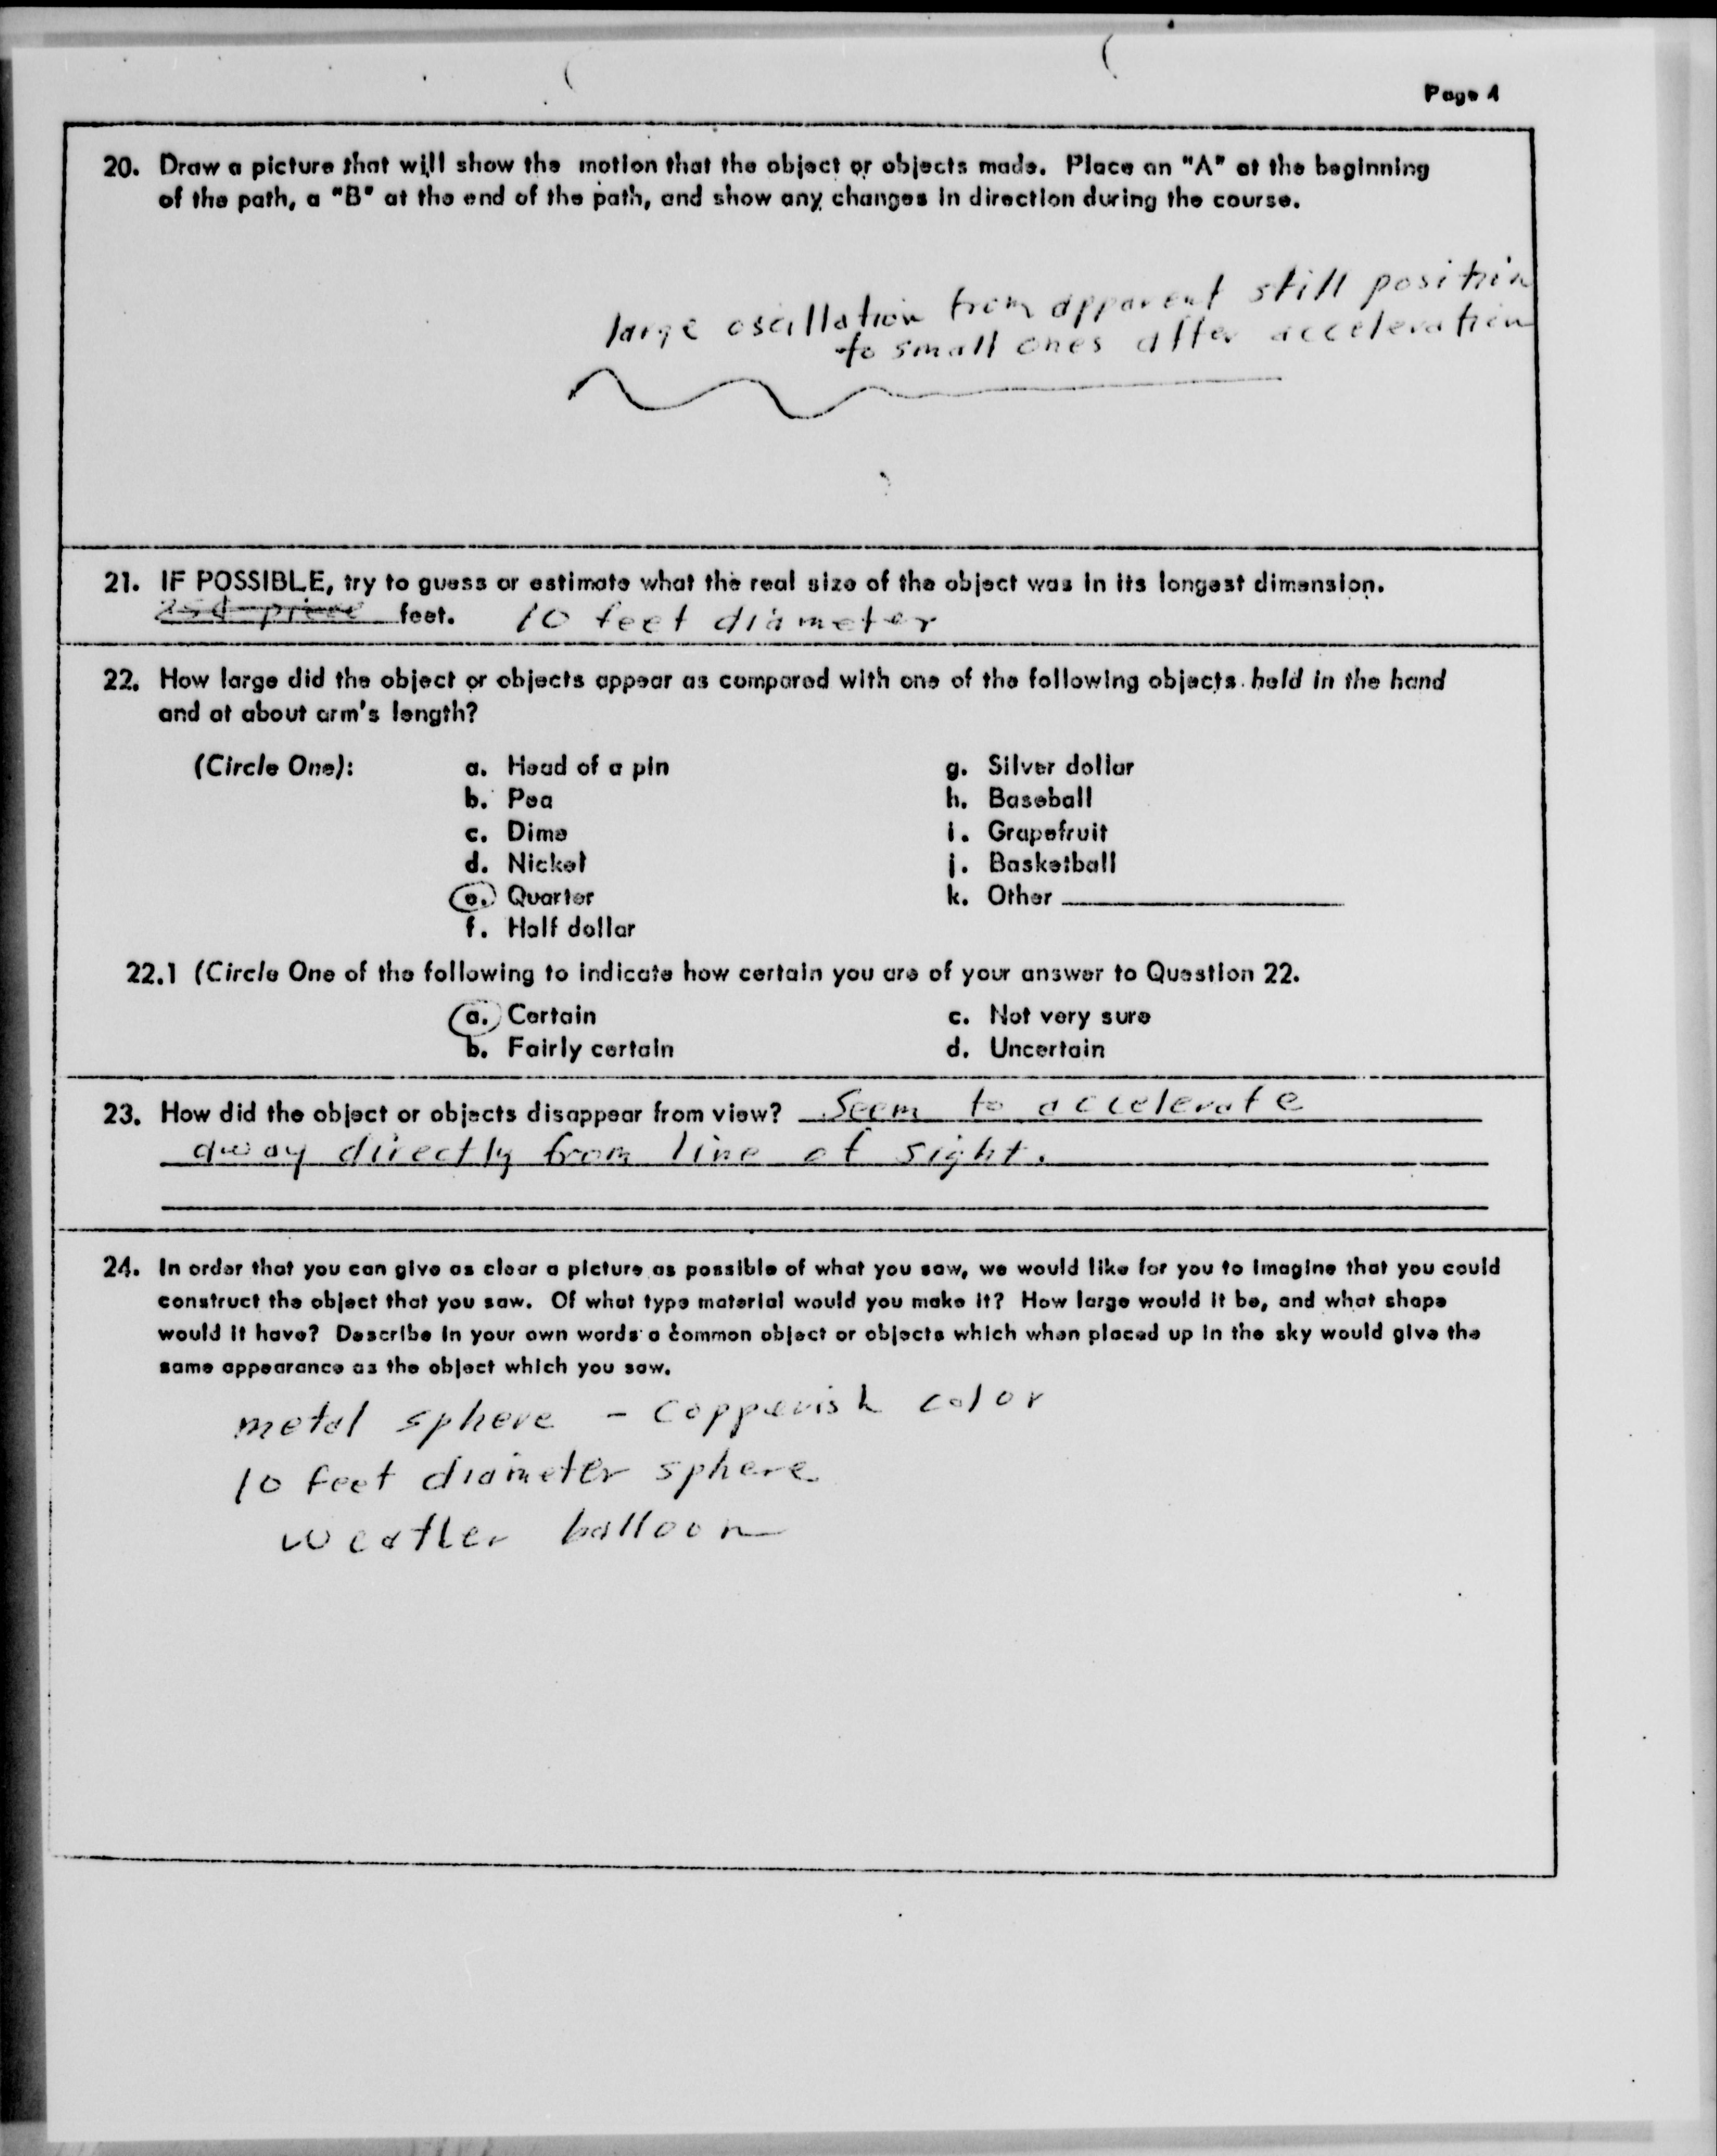 Page 4
20. Draw a picture that will show the motion that the object or objects made. Place an "A" at the beginning
of the path, a "B" at the end of the path, and show any changes in direction during the course.
large oscillation from apparent still position
to small ones after acceleration
21. IF POSSIBLE, try to guess or estimate what the real size of the object was in its longest dimension.
feet. 10 feet diameter
22. How large did the object or objects appear as compared with one of the following objects held in the hand
and at about arm's length?
(Circle One): a. Head of a pin g. Silver dollar
b. Pea h. Baseball
c. Dime i. Grapefruit
d. Nickel j. Basketball
e. Quarter k. Other
f. Half dollar
22.1 (Circle One of the following to indicate how certain you are of your answer to Question 22.
a. Certain c. Not very sure
b. Fairly certain d. Uncertain
23. How did the object or objects disappear from view? Seem to accelerate
away directly from line of sight.
24. In order that you can give as clear a picture as possible of what you saw, we would like for you to imagine that you could
construct the object that you saw. Of what type material would you make it? How large would it be, and what shape
would it have? Describe in your own words a common object or objects which when placed up in the sky would give the
same appearance as the object which you saw.
metal sphere - copperish color
10 feet diameter sphere
weather balloon